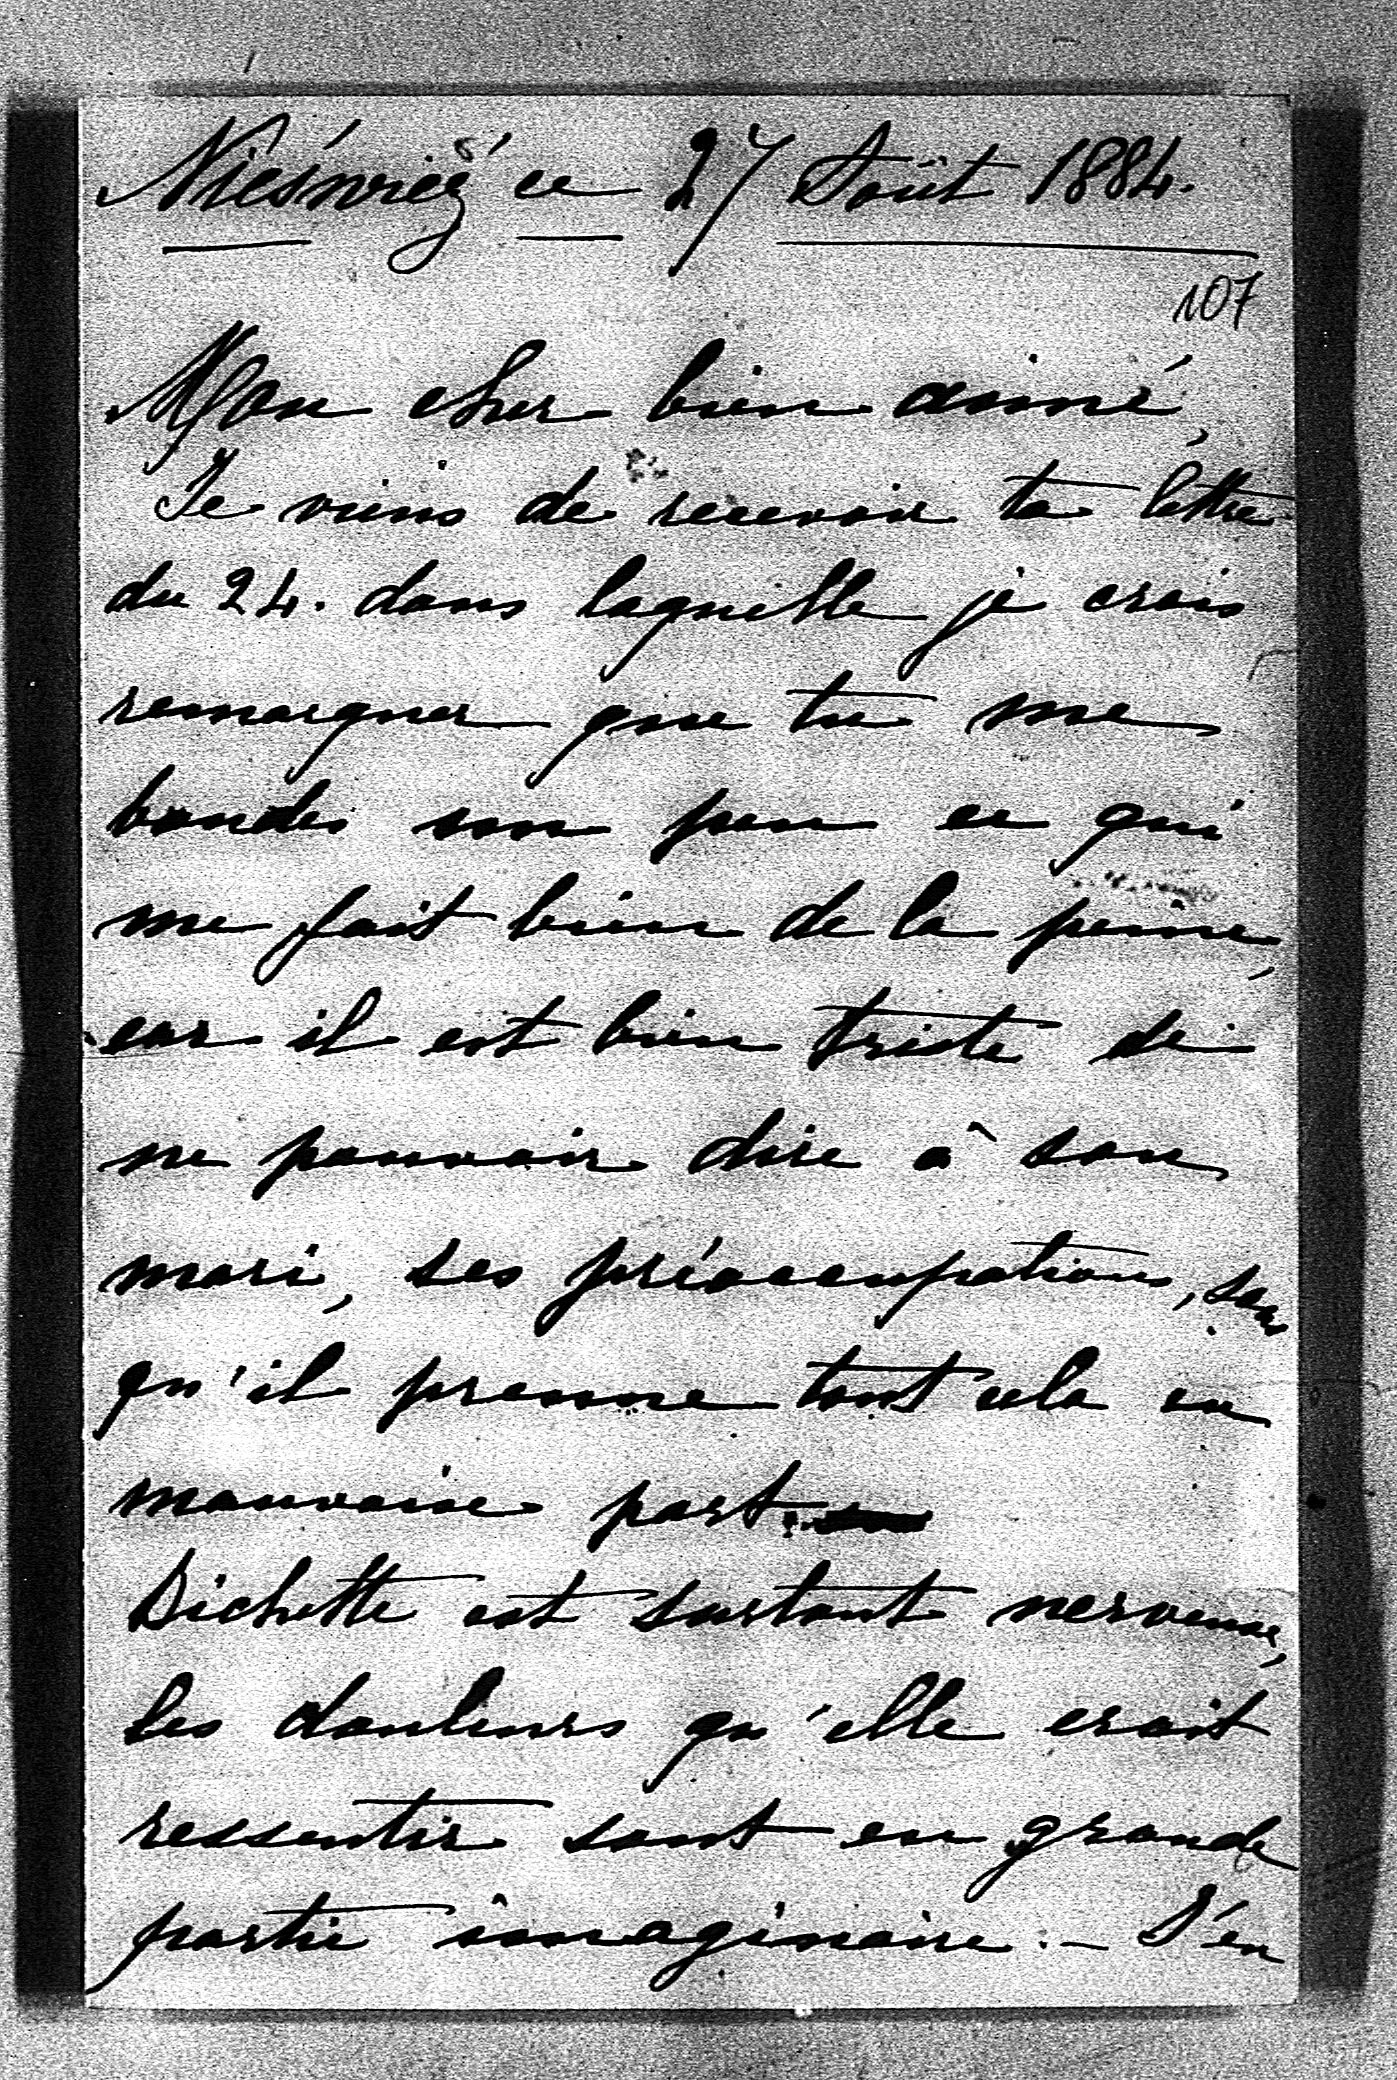 Nieśwież ce 27 Août 1884.
107
Mon cher bien aimé,
Je viens de recevoir ta lettre
du 24. dans laquelle je crois
remarquer que tu me
boudes un peu ce qui
me fait bien de la peine,
car il est bien triste de
ne pouvoir dire à son
mari, ses préoccupations, sans
qu'il prenne tout cela en
mauvaise part.
Bichette est surtout nerveuse,
les douleurs qu'elle croit
ressentir sont en grande
partie imaginaire. – J'en